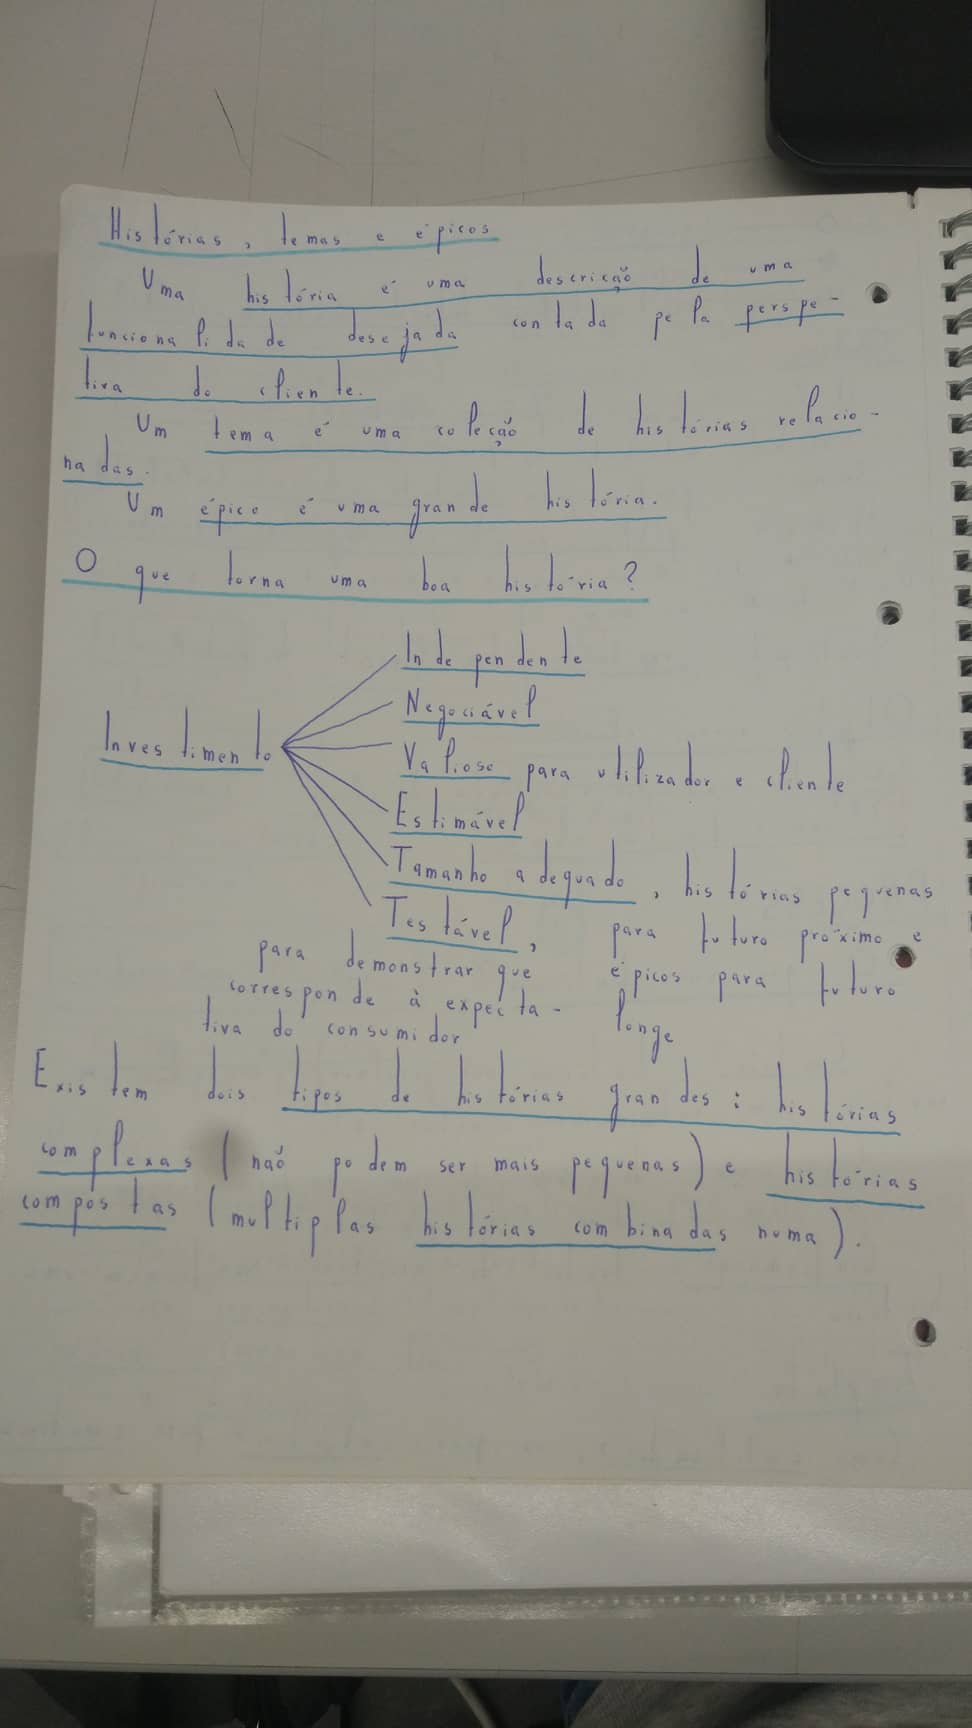 Histórias, temas e épicos
Uma história é uma descrição de uma
funcionalidade desejada contada pela perspe-
tiva do cliente.
Um tema é uma coleção de histórias relacio-
nadas.
Um épico é uma grande história.
O que torna uma boa história?
Independente
Negociável
Investimento
Valioso para utilizador e cliente
Estimável
Tamanho adequado, histórias pequenas
para futuro próximo e
épicos para futuro
longe
Testável,
para demonstrar que
corresponde à expecta-
tiva do consumidor
Existem dois tipos de histórias grandes: histórias
complexas (não podem ser mais pequenas) e histórias
compostas (multiplas histórias combinadas numa).